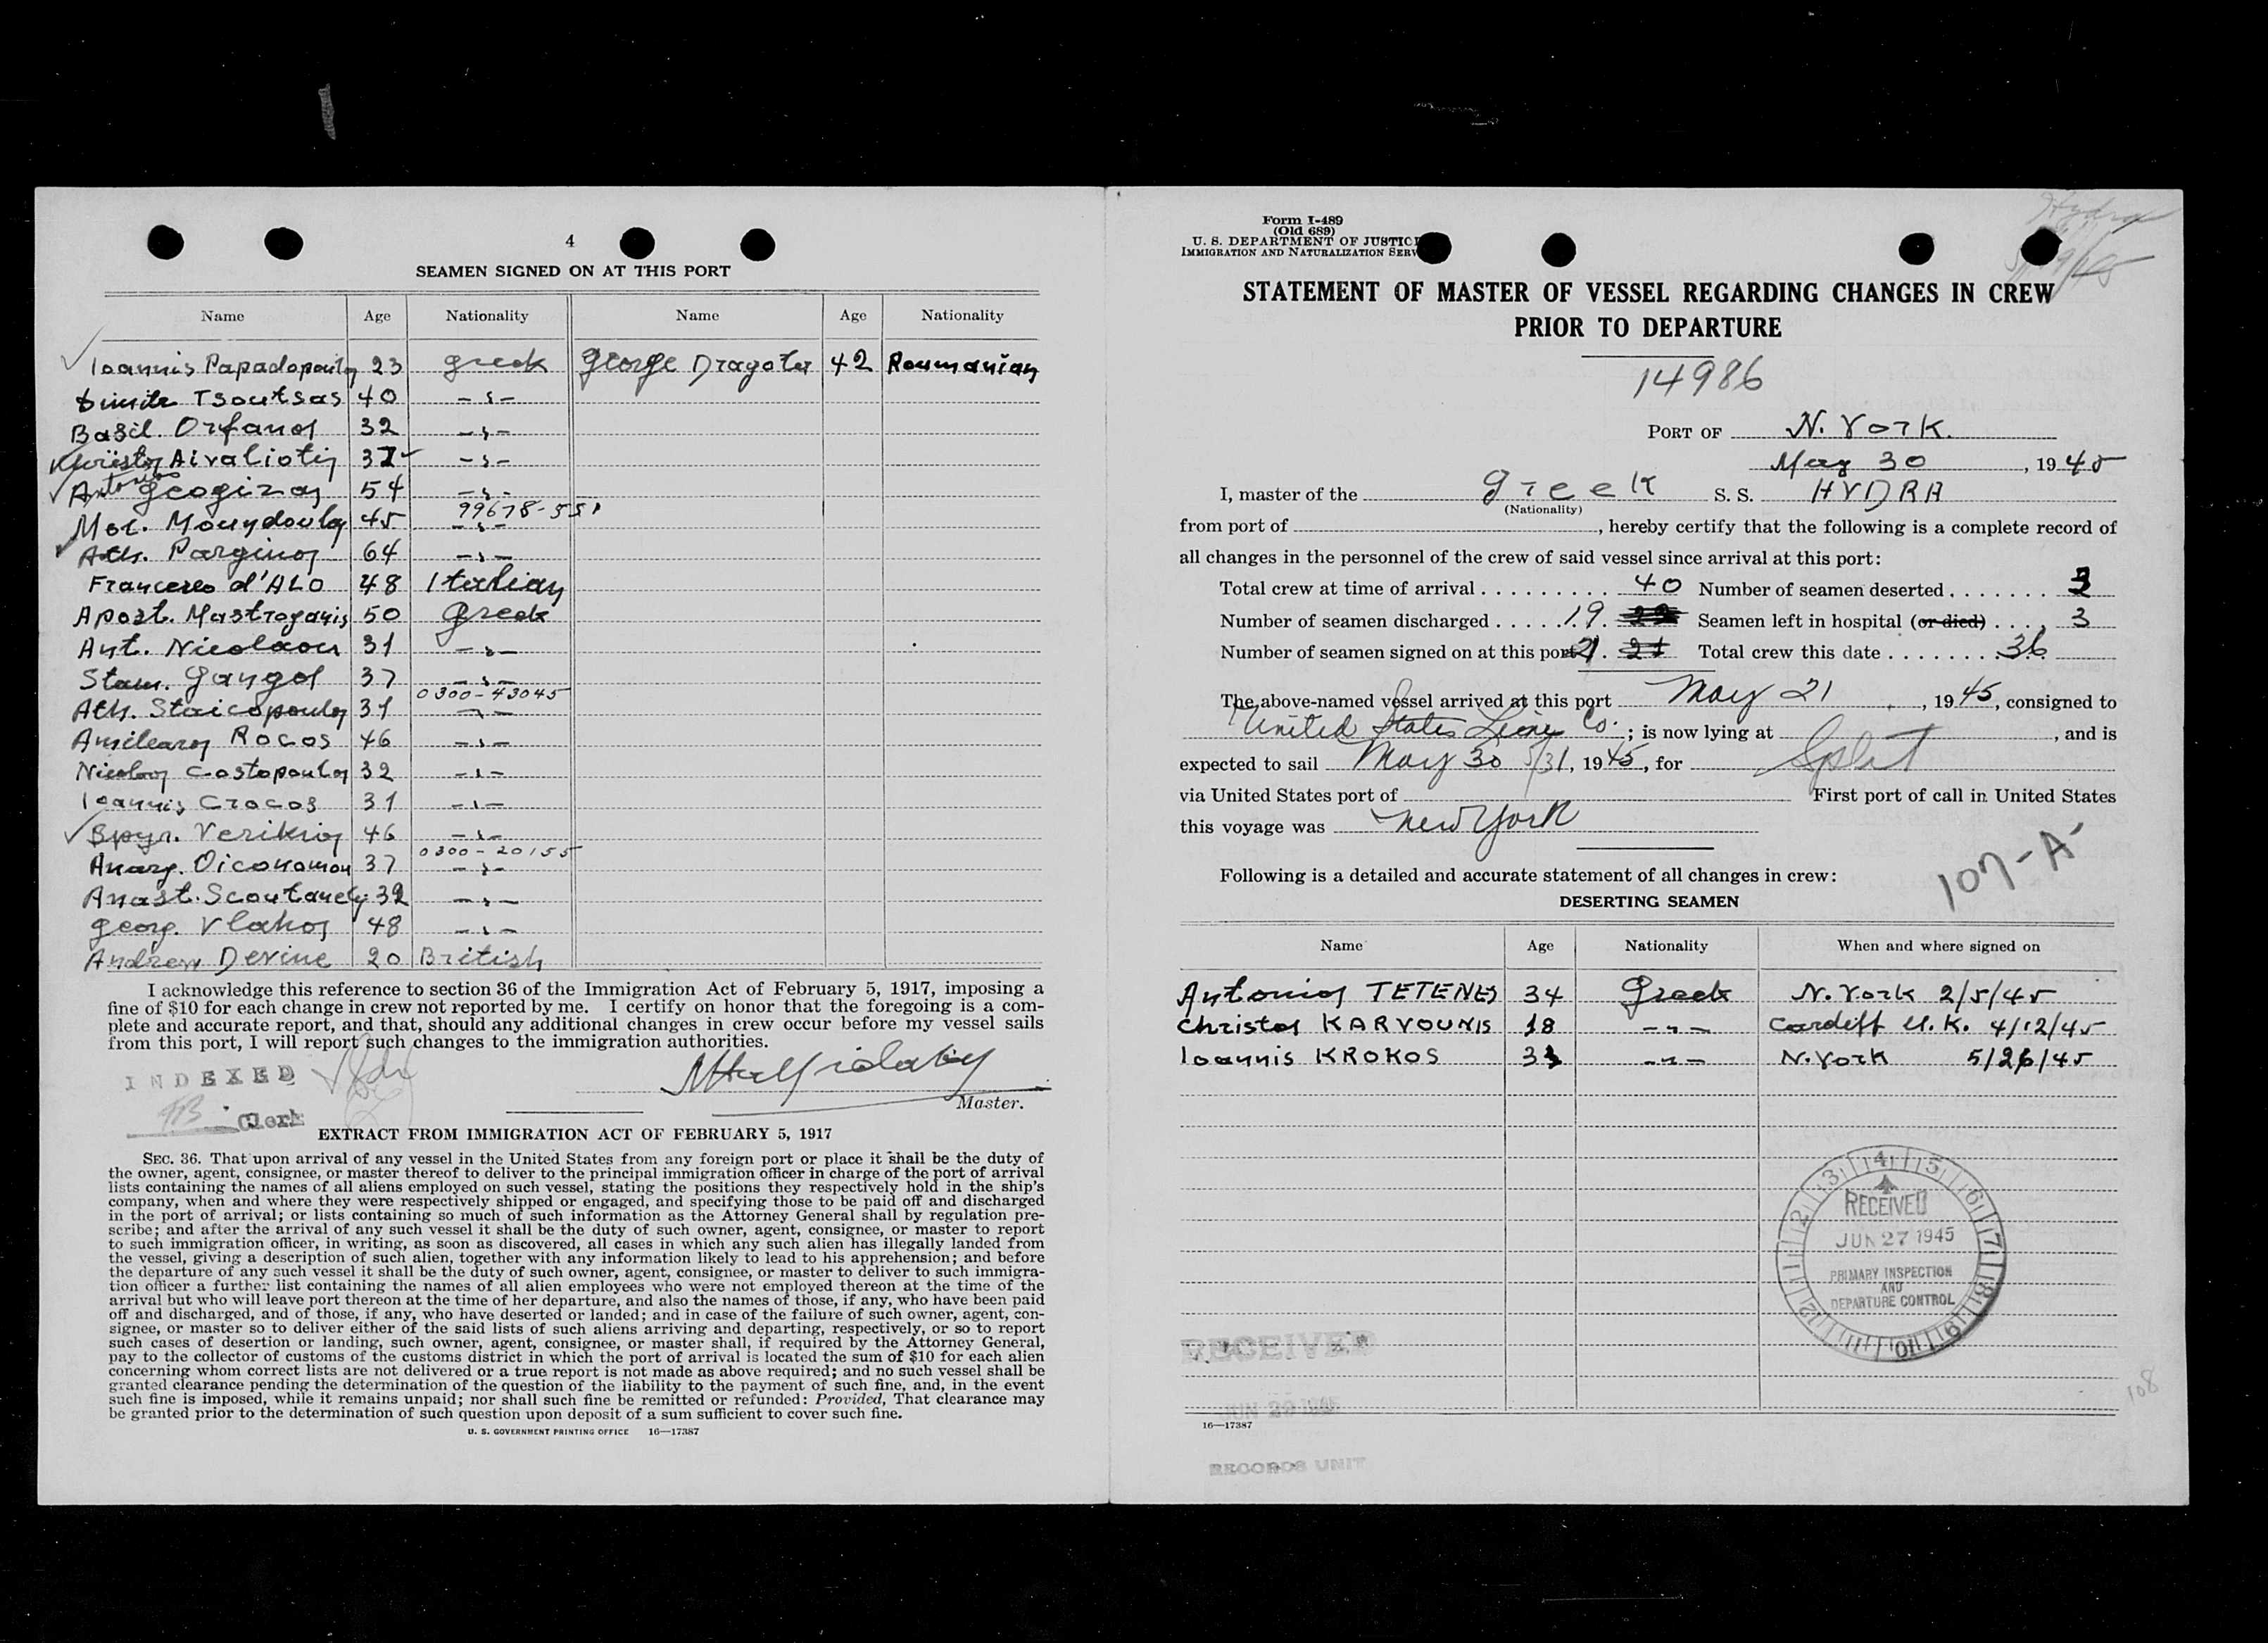 4
SEAMEN SIGNED ON AT THIS PORT
Name Age Nationality Name Age Nationality
Ioannis Papadopoulos 23 Greek George Dragotes 42 Roumanian
Dimitr Tsoutsas 40 -"-
Basil. Orfanos 32 -"-
Christos Aivaliotis 37 -"-
Antonios Geogizas 54 -"-
99678-551
45 -"-
Ath. Parginos 64 -"-
Francesco d'ALO 48 Italian
Apost. Mastroganis 50 Greek
Ant. Nicolaou 31 -"-
Stam. Gangos 37 -"-
0300-43045
Ath. Staicopoulos 31 -"-
Rocos 46 -"-
Nicolaos Costopoulos 32 -"-
Ioannis Crocos 31 -"-
Spyr. Verikios 46 -"-
0300-20155
Anarg. Oiconomou 37 -"-
Anast. Scoutanelis 32 -"-
Georg. Vlahos 48 -"-
Andrew Devine 20 British
I acknowledge this reference to section 36 of the Immigration Act of February 5, 1917, imposing a
fine of $10 for each change in crew not reported by me. I certify on honor that the foregoing is a com-
plete and accurate report, and that, should any additional changes in crew occur before my vessel sails
from this port, I will report such changes to the immigration authorities.
INDEXED
Clerk
Master.
EXTRACT FROM IMMIGRATION ACT OF FEBRUARY 5, 1917
SEC. 36. That upon arrival of any vessel in the United States from any foreign port or place it shall be the duty of
the owner, agent, consignee, or master thereof to deliver to the principal immigration officer in charge of the port of arrival
lists containing the names of all aliens employed on such vessel, stating the positions they respectively hold in the ship's
company, when and where they were respectively shipped or engaged, and specifying those to be paid off and discharged
in the port of arrival; or lists containing so much of such information as the Attorney General shall by regulation pre-
scribe; and after the arrival of any such vessel it shall be the duty of such owner, agent, consignee, or master to report
to such immigration officer, in writing, as soon as discovered, all cases in which any such alien has illegally landed from
the vessel, giving a description of such alien, together with any information likely to lead to his apprehension; and before
the departure of any such vessel it shall be the duty of such owner, agent, consignee, or master to deliver to such immigra-
tion officer a further list containing the names of all alien employees who were not employed thereon at the time of the
arrival but who will leave port thereon at the time of her departure, and also the names of those, if any, who have been paid
off and discharged, and of those, if any, who have deserted or landed; and in case of the failure of such owner, agent, con-
signee, or master so to deliver either of the said lists of such aliens arriving and departing, respectively, or so to report
such cases of desertion or landing, such owner, agent, consignee, or master shall, if required by the Attorney General,
pay to the collector of customs of the customs district in which the port of arrival is located the sum of $10 for each alien
concerning whom correct lists are not delivered or a true report is not made as above required; and no such vessel shall be
granted clearance pending the determination of the question of the liability to the payment of such fine, and, in the event
such fine is imposed, while it remains unpaid; nor shall such fine be remitted or refunded: Provided, That clearance may
be granted prior to the determination of such question upon deposit of a sum sufficient to cover such fine.
U. S. GOVERNMENT PRINTING OFFICE 16—17387
Form I-489
(Old 689)
U. S. DEPARTMENT OF JUSTIC
IMMIGRATION AND NATURALIZATION SERV
Hydra
STATEMENT OF MASTER OF VESSEL REGARDING CHANGES IN CREW
PRIOR TO DEPARTURE
14986
PORT OF N. York.
May 30, 1945
I, master of the Greek S. S. HYDRA
(Nationality)
from port of , hereby certify that the following is a complete record of
all changes in the personnel of the crew of said vessel since arrival at this port:
Total crew at time of arrival 40 Number of seamen deserted 3
Number of seamen discharged 19 Seamen left in hospital (or died) 3
Number of seamen signed on at this port 21 21 Total crew this date 36
The above-named vessel arrived at this port May 21, 1945, consigned to
United States Lines Co.; is now lying at , and is
expected to sail May 30 5/31, 1945, for Split
via United States port of First port of call in United States
this voyage was New York
107-A
Following is a detailed and accurate statement of all changes in crew:
DESERTING SEAMEN
Name Age Nationality When and where signed on
Antonios TETENES 34 Greek N. York 2/5/45
Christos KARVOUNIS 18 -"- Cardiff U.K. 4/12/45
Ioannis KROKOS 31 -"- N. York 5/26/45
RECEIVED
JUN 27 1945
PRIMARY INSPECTION
AND
DEPARTURE CONTROL
RECEIVED
JUN 29 1945
RECORDS UNIT
108
16—17387